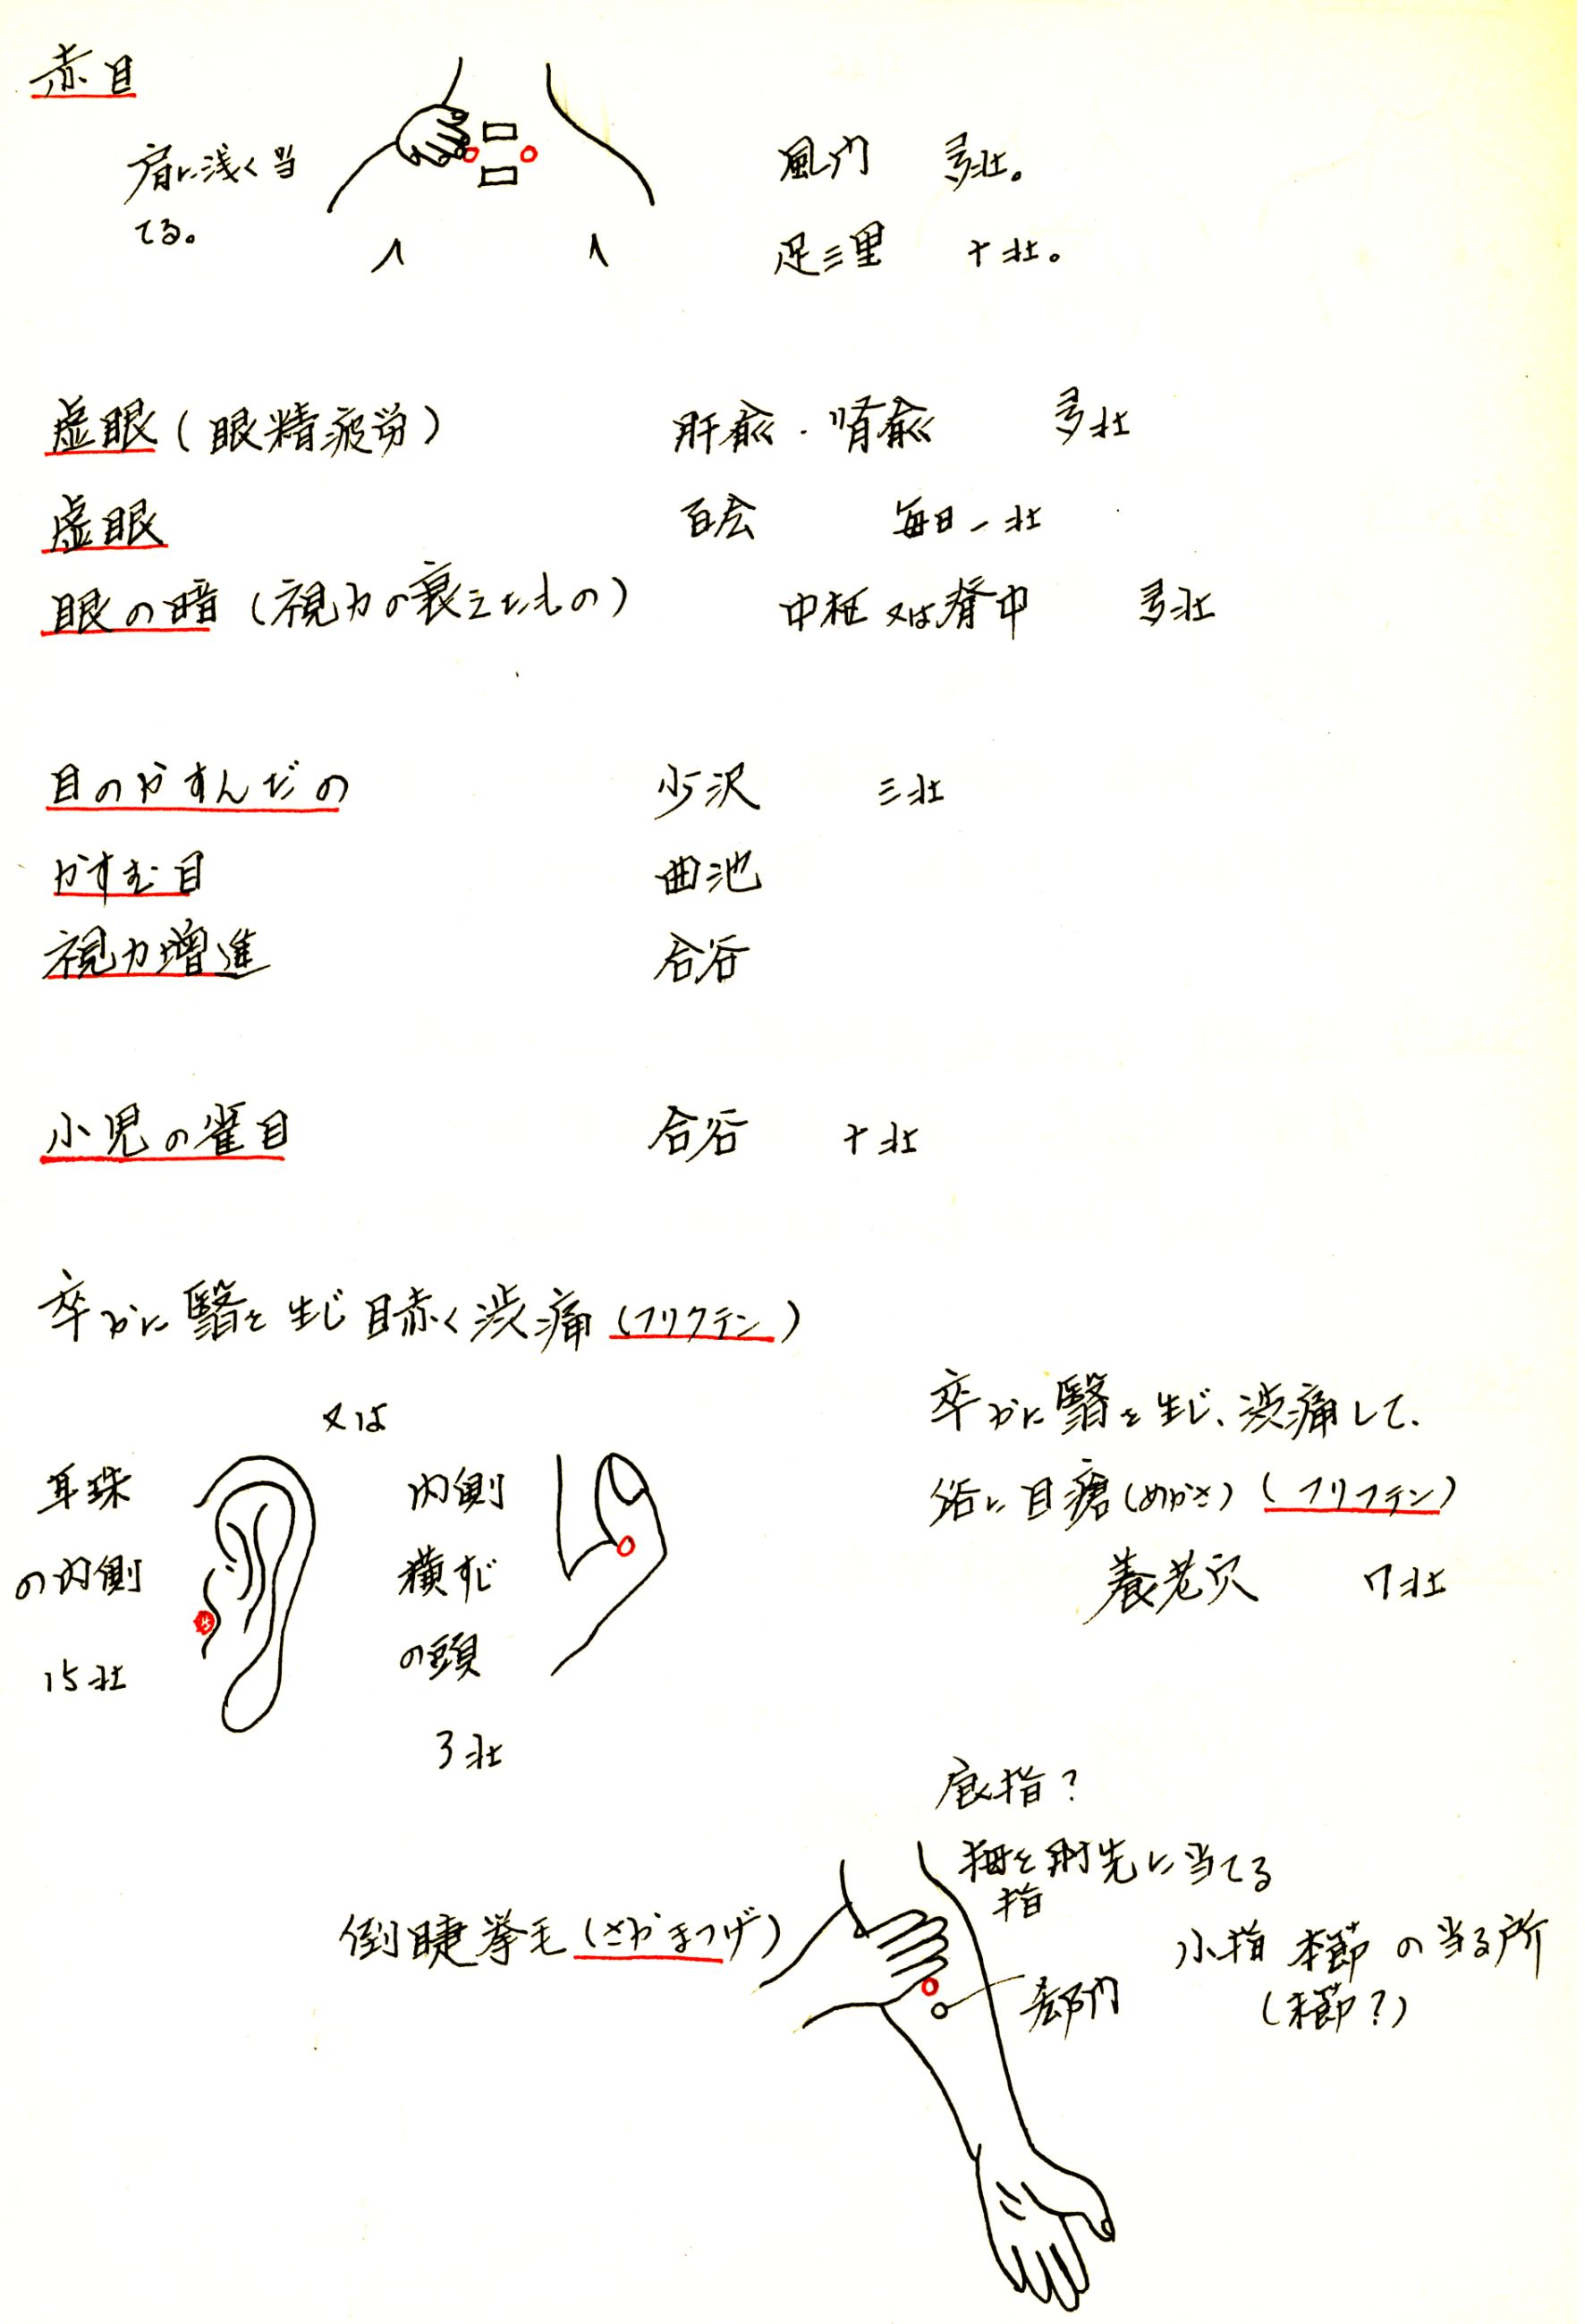 赤目
肩に浅く当
てる。
風門 多壮。
足三里 十壮。
虚眼（眼精疲労） 肝兪・腎兪 多壮
虚眼 百会 毎日一壮
眼の暗（視力の衰えたもの） 中枢又は脊中 多壮
目のかすんだの 少沢 三壮
かすむ目 曲池
視力増進 合谷
小児の雀目 合谷 十壮
卒かに翳を生じ目赤く渋痛（フリクテン）
又は
耳珠
の内側
15壮
内側
横すじ
の頭
3壮
卒かに翳を生じ、渋痛して、
俗に目瘡（めかさ）（フリクテン）
養老穴 7壮
食指？
拇を肘先に当てる
指
倒睫拳毛（さかまつげ）
小指 本節の当る所
（末節？）
郄門